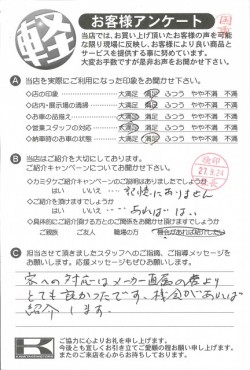 軽
お客様アンケート
当店では、お買い上げ頂いたお客様の声を可能
な限り現場に反映し、お客様により良い商品と
サービスを提供する事に努めています。
大変お手数ですが是非お声をお聞かせ下さい。
A 当店を実際にご利用になった印象をお聞かせ下さい。
◇店の印象 大満足 満足 ふつう やや不満 不満
◇店内・展示場の清掃 大満足 満足 ふつう やや不満 不満
◇お車の品揃え 大満足 満足 ふつう やや不満 不満
◇営業スタッフの対応 大満足 満足 ふつう やや不満 不満
◇納車時のお車の状態 大満足 満足 ふつう やや不満 不満
B 当店はご紹介を大切にしております。
ご紹介キャンペーンについてお聞かせ下さい。
◇カミタケご紹介キャンペーンのご説明はありましたでしょうか
はい いいえ 記憶にありません
◇ご紹介を頂けますでしょうか
はい いいえ あれば は、、
◇具体的にご紹介頂ける方とのご関係をお聞かせ頂けますでしょうか
ご親族 ご友人 職場の方 機会があれば紹介したい
検印
27.9.24
C 担当させて頂きましたスタッフへのご指摘、ご指導メッセージを
お願いします。応援メッセージもぜひお願いします。
客への対応はメーカー直営の店より
とても良かったです。機会があれば
紹介します。
K
ご協力に心よりお礼を申し上げます。
今後とも宜しくお引き立てご愛顧の程お願い申し上げます。
またのご来店を心からお待ちしております。